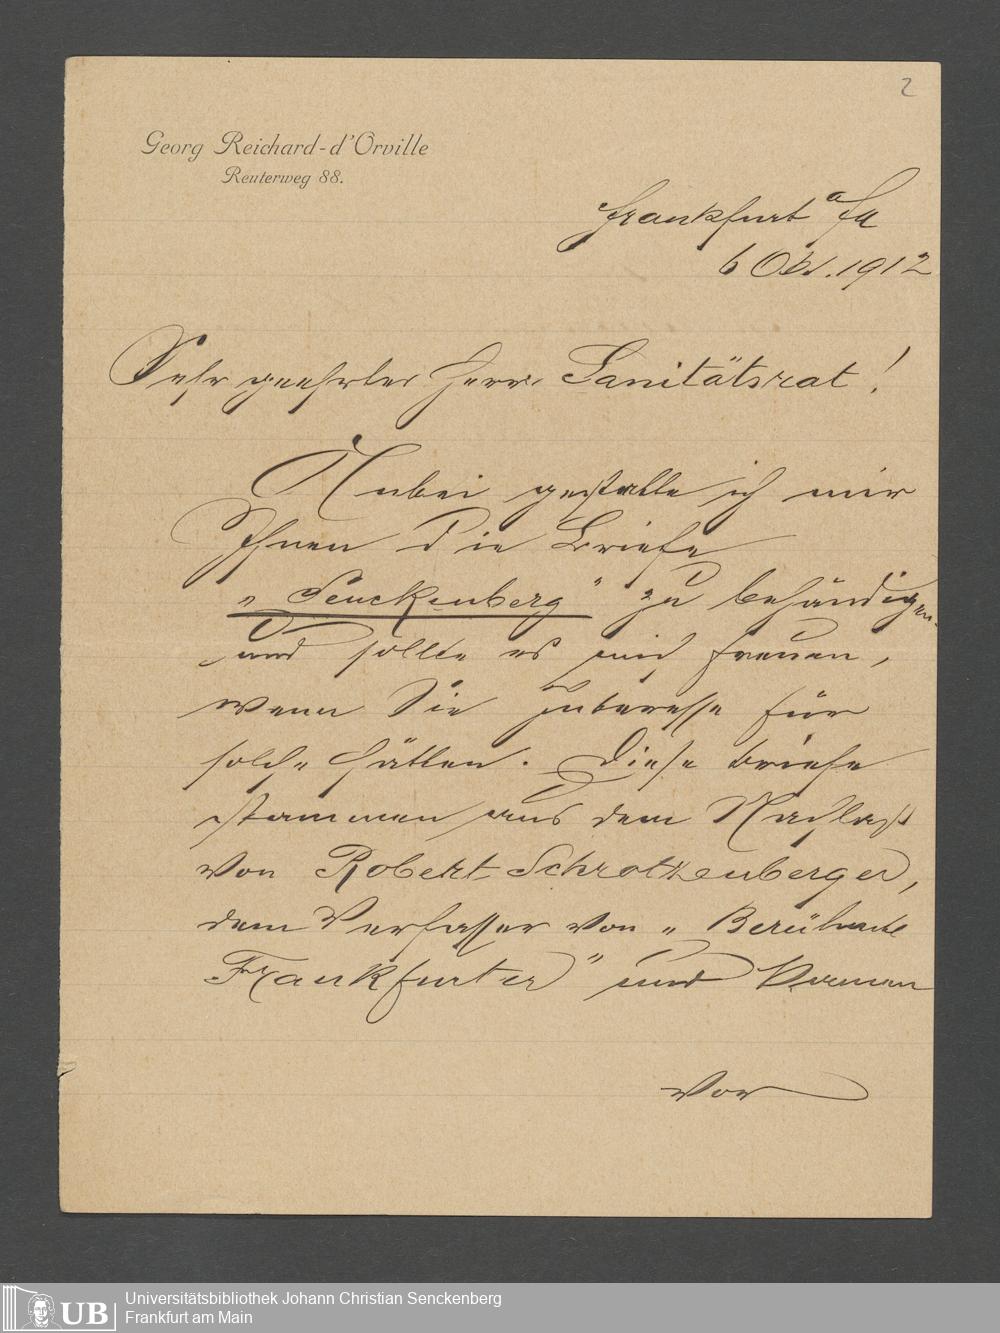 2
Georg Reichard-d'Orville
Reuterweg 88.
Frankfurt a/M
6 Okt. 1912
Sehr geehrter Herr Sanitätsrat!
Anbei gestatte ich mir
Ihnen die Briefe
„Senckenberg" zu behändigen
und sollte es mich freuen,
wenn Sie Interesse für
solche hätten. Diese Briefe
stammen aus dem Nachlaß
von Robert Schrotzenberger,
dem Verfasser von „Berühmte
Frankfurter" und kamen
vor
UB
Universitätsbibliothek Johann Christian Senckenberg
Frankfurt am Main